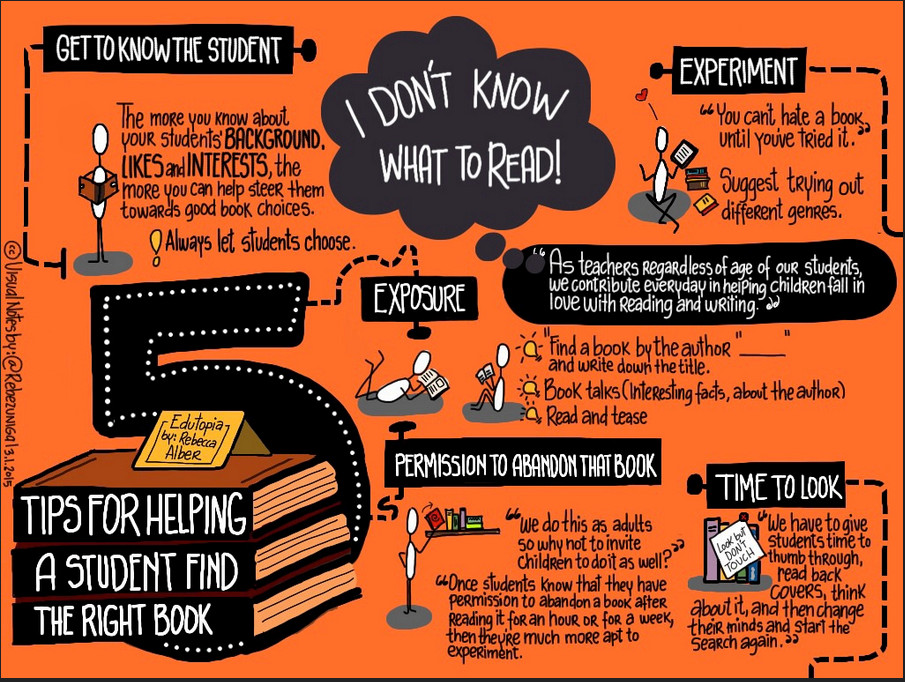 GET TO KNOW THE STUDENT
The more you know about
your students' BACKGROUND,
LIKES and INTERESTS, the
more you can help steer them
towards good book choices.
! Always let students choose.
I DON'T KNOW
WHAT TO READ!
EXPERIMENT
"You can't hate a book
until you've tried it."
Suggest trying out
different genres.
"As teachers regardless of age of our students,
we contribute everyday in helping children fall in
love with reading and writing."
EXPOSURE
"Find a book by the author "_____"
and write down the title.
Book talks (Interesting facts, about the author)
Read and tease
5
Edutopia
by: Rebecca
Alber
TIPS FOR HELPING
A STUDENT FIND
THE RIGHT BOOK
PERMISSION TO ABANDON THAT BOOK
"We do this as adults
so why not to invite
Children to do it as well?"
"Once students know that they have
permission to abandon a book after
Reading it for an hour or for a week,
then they're much more apt to
experiment.
TIME TO LOOK
Look but
DON'T
TOUCH
"We have to give
students time to
thumb through,
read back
COVERS, think
about it, and then change
their minds and start the
search again."
(cc) Visual Notes by: @Rebezuniga | 3.1.2015